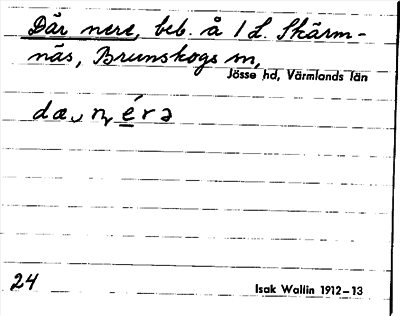 Där nere, beb. å 1 L. Skärm-
näs, Brunskogs sn,
Jösse hd, Värmlands län
24
Isak Wallin 1912-13